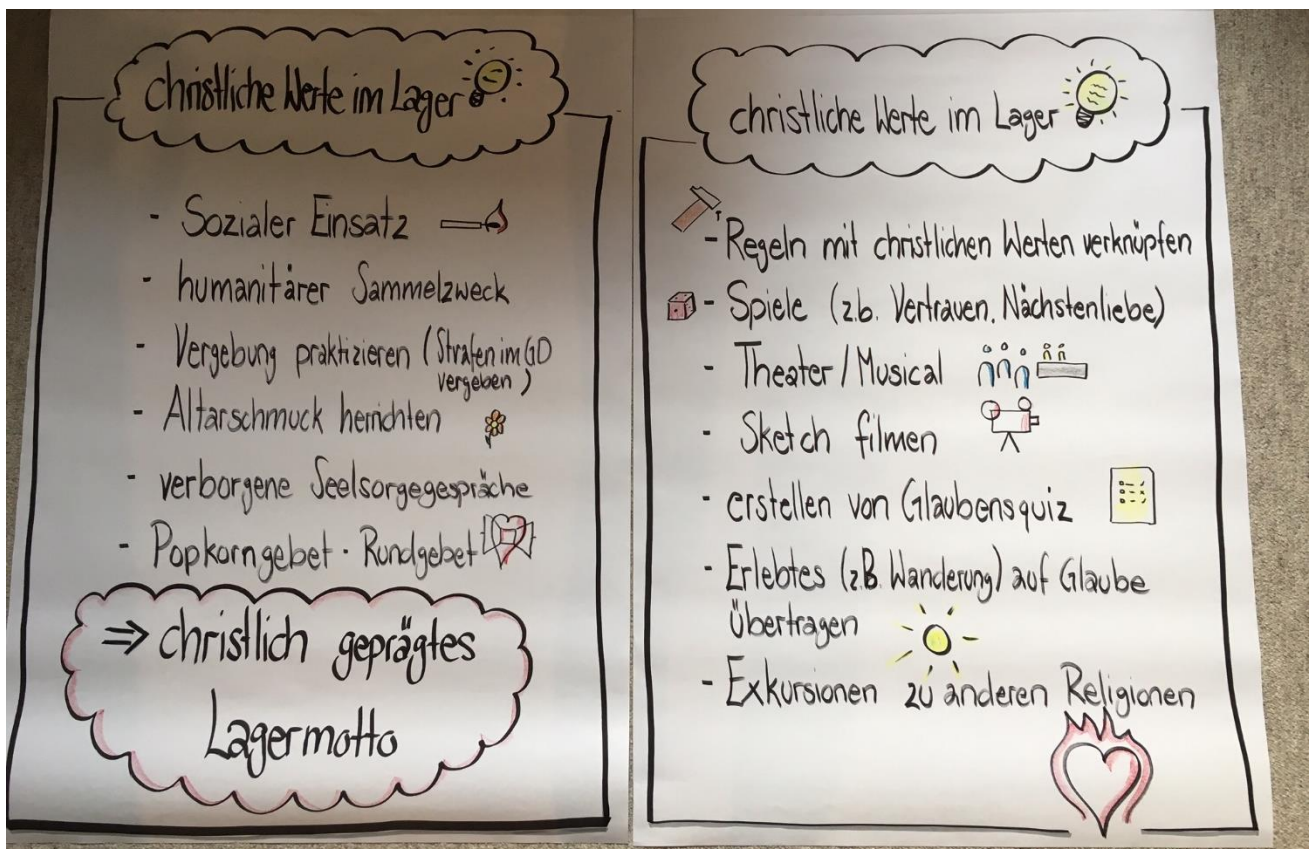 christliche Werte im Lager
- Sozialer Einsatz
- humanitärer Sammelzweck
- Vergebung praktizieren (Strafen im GD
vergeben)
- Altarschmuck herrichten
- verborgene Seelsorgegespräche
- Popkorngebet · Rundgebet
⇒ christlich geprägtes
Lagermotto
christliche Werte im Lager
- Regeln mit christlichen Werten verknüpfen
- Spiele (z.b. Vertrauen, Nächstenliebe)
- Theater/Musical
- Sketch filmen
- erstellen von Glaubensquiz
- Erlebtes (z.B. Wanderung) auf Glaube
Übertragen
- Exkursionen zu anderen Religionen